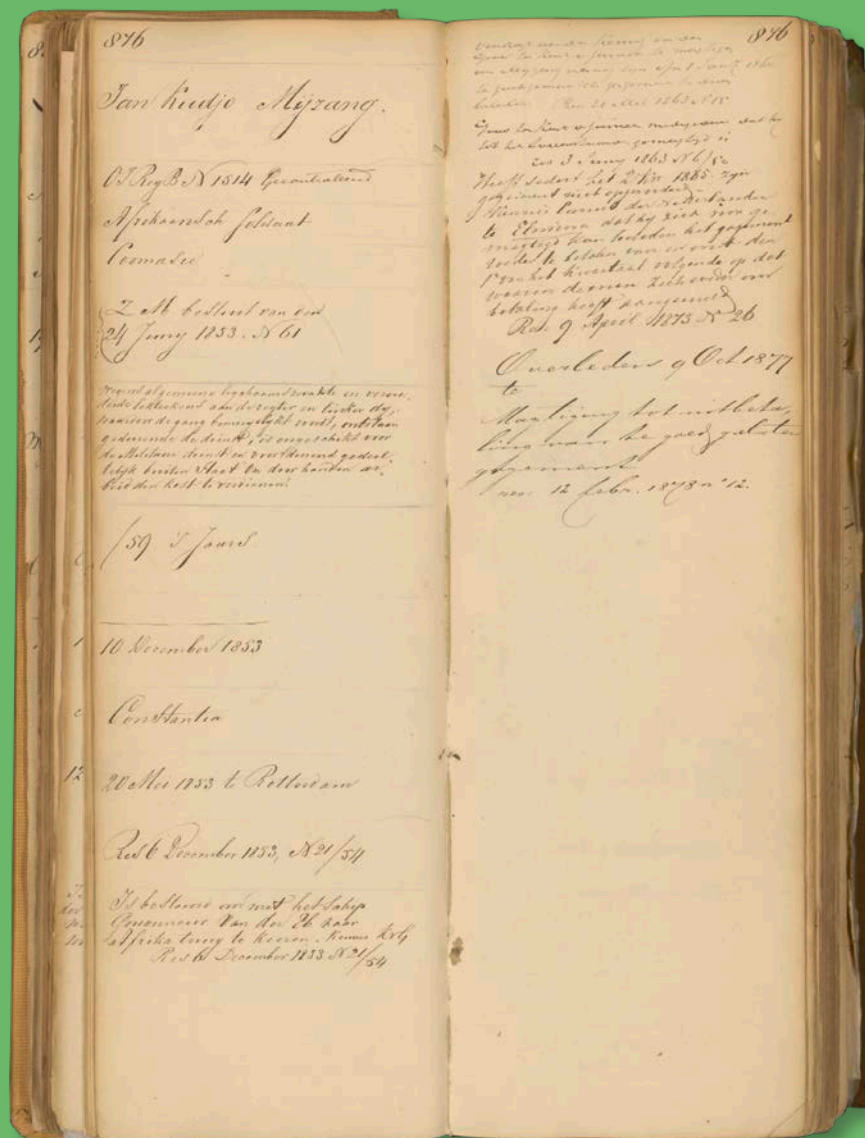 876
Jan Kudjo Mijzang.
OI Reg B N 1514 Gecontracteerd
Afrikaansch Soldaat
Coomasie
Z M besluit van den
24 Juny 1853. N 61
Wegens algemeene ligchaamszwakte en
aan de regter en linker dij,
waardoor de gang bemoeyelijkt wordt, ontstaan
gedurende de dienst, is ongeschikt voor
de Militaire dienst en voortdurend gedeel-
telijk buiten staat om door handen ar-
beid den kost te verdienen.
f 59 's Jaars
10 December 1853
Constantia
20 Mei 1853 te Rotterdam
Res 6 December 1853, N 21/54
Is bestemd om met het Schip
Gouverneur Van der Eb naar
Afrika terug te keeren. Kennis
Res 6 December 1853 N 21/54
876
Res 21 Mei 1863 N
tot het
res 3 Juny 1863 N 6
Heeft sedert het 2e 1865 zijn
gagement niet
Kennis Comms der Nederlanden
te Elmina dat hij zich
magtigd kan houden het gagement
weder te betalen van en met den
1e van het kwartaal volgende op dat
waarin de man zich weder om
betaling heeft aangemeld
Res. 9 April 1873 N 26
Overleden 9 Oct 1877
te
Magtiging tot uitbeta-
ling van te goed gelaten
gagement
res. 12 febr. 1878 n° 12.